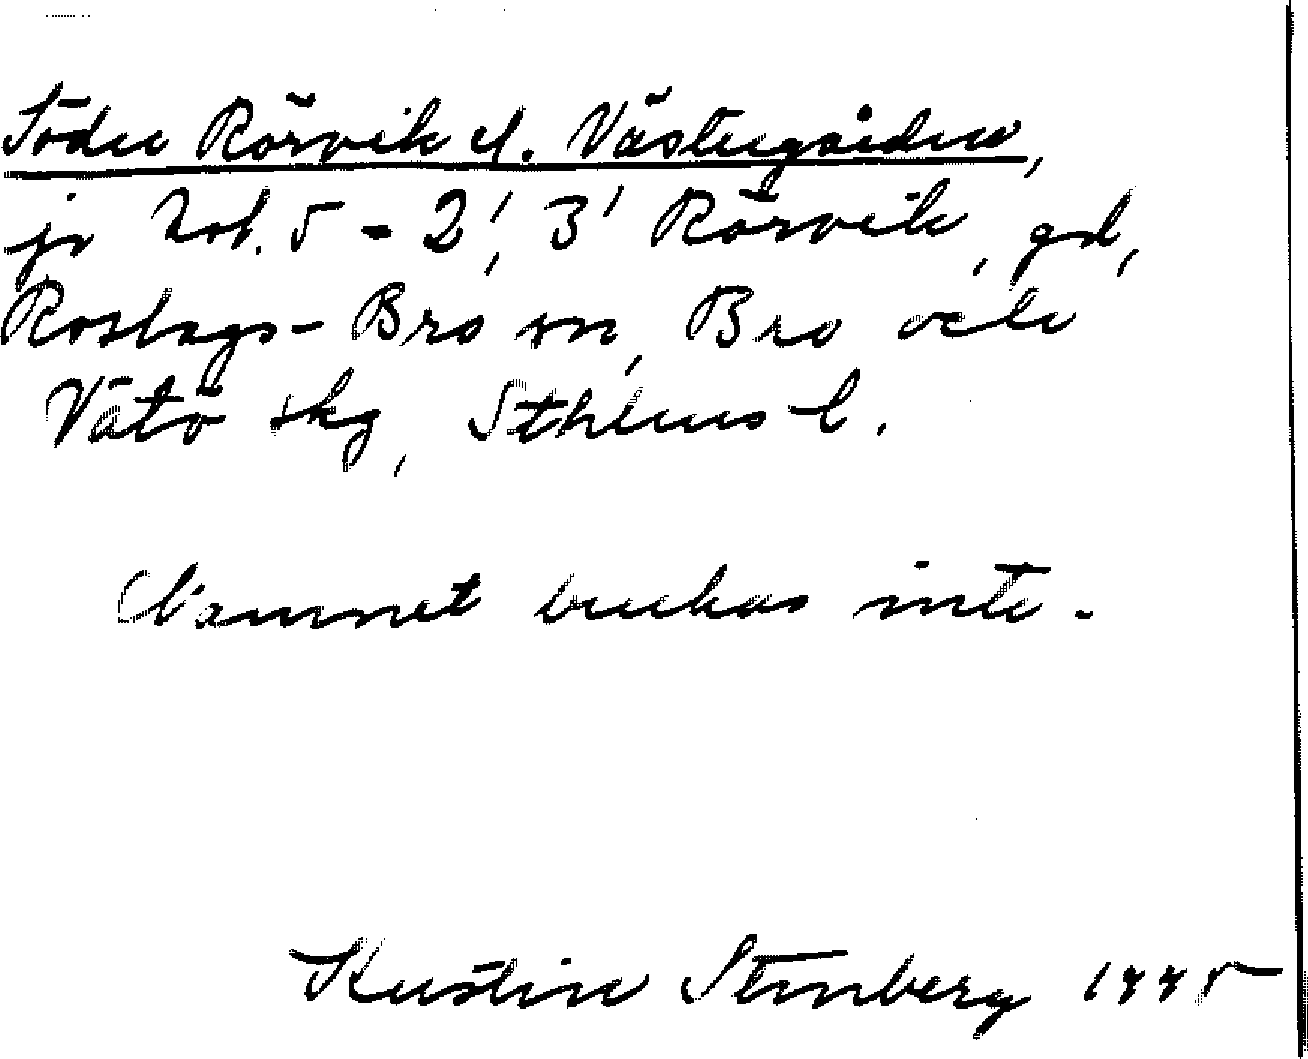 Söder Rörvik el. Västergården,
jr Not. 5 - 2', 3' Rörvik, gd,
Roslags-Bro sn, Bro och
Vätö skg, Sthlms l.
Namnet brukas inte.
Kerstin Stenberg 1995